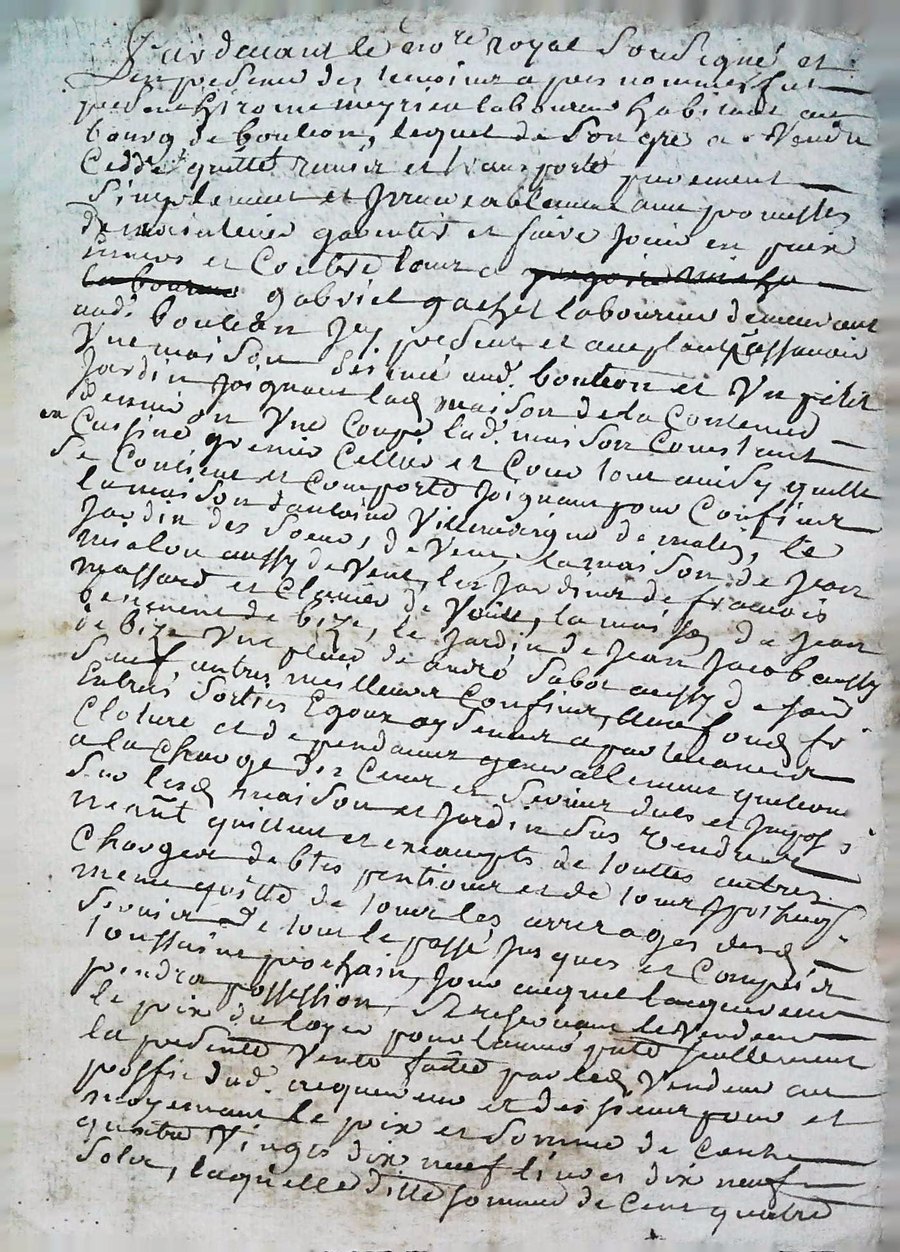 Par devant le no.re royal Soussigné et
En presence des temoins apres nommés fut
present hirome meyrieu laboureur habitant au
bourg de boulieu, lequel de Son gré a Vendu
Cedde quitté remis et transporté purement
Simplement et Irrevocablement avec promesses
de maintenir garentir et faire Jouir en paix
Envers et Contre tous a
laboureur gabriel gachet laboureur demeurant
aud. boulieu Icy present et acceptant, assavoir
Une maison scituée aud. boulieu et Un petit
Jardin Joignant lad maison de la Contenue
demie Une Coupé lad. maison Consistant
en Cuisine grenier Cellier et Cour tout ainsy quelle
Se Contient et Comporte Joignant pour Confins
la maison dantoine de matin, le
Jardin des Soeurs, de Vent, la maison de Jean
aussy de Vent, les Jardins de francois
massard et de la maison de Jean
de bize, le Jardin de Jean Jacob aussy
de bize Une place de andré Sabot aussy de
Sauf autres meilleurs Confins, avec fonds
Entrées Sorties Egoux aysances apartenances
Cloture et dependances generallement quelconques
a la Charge des Cens et Servis dubs et Imposés
Sur lesd maison et Jardin Sus Vendus
neant quittes et exempts de touttes autres
Charges debtes pentions et de tous Ipotheques
meme quitte de tous les arrerages desd
Servis de tout le passé Jusques et Compris
toussaint prochain, Jour auquel lacquereur
prendra possession, Se reservant le Vendeur
le prix du loyer pour lannée seullement
la presente Vente faitte par led Vendeur au
proffit dud. acquereur et des siens pour et
moyennant le prix et Somme de Cent
quatre Vingts dix neuf livres dix neuf
Sols, laquelle ditte Somme de Cent quatre